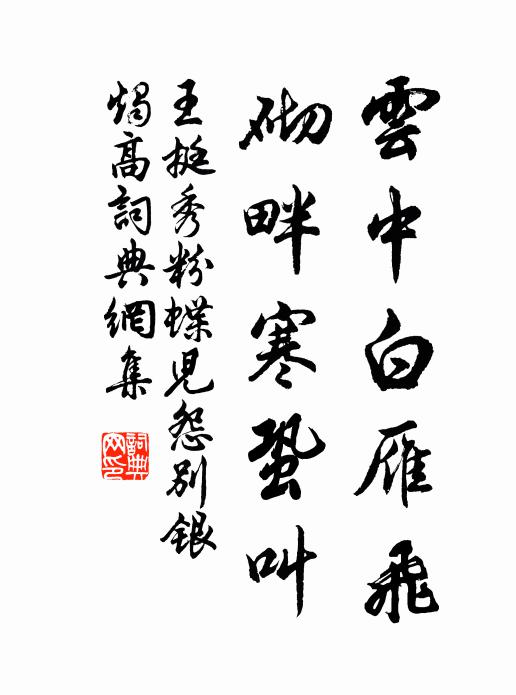 雲中白雁飛
砌畔寒蛩叫
王挺秀粉蝶児怨別銀
燭高詞典網集
詞典网印